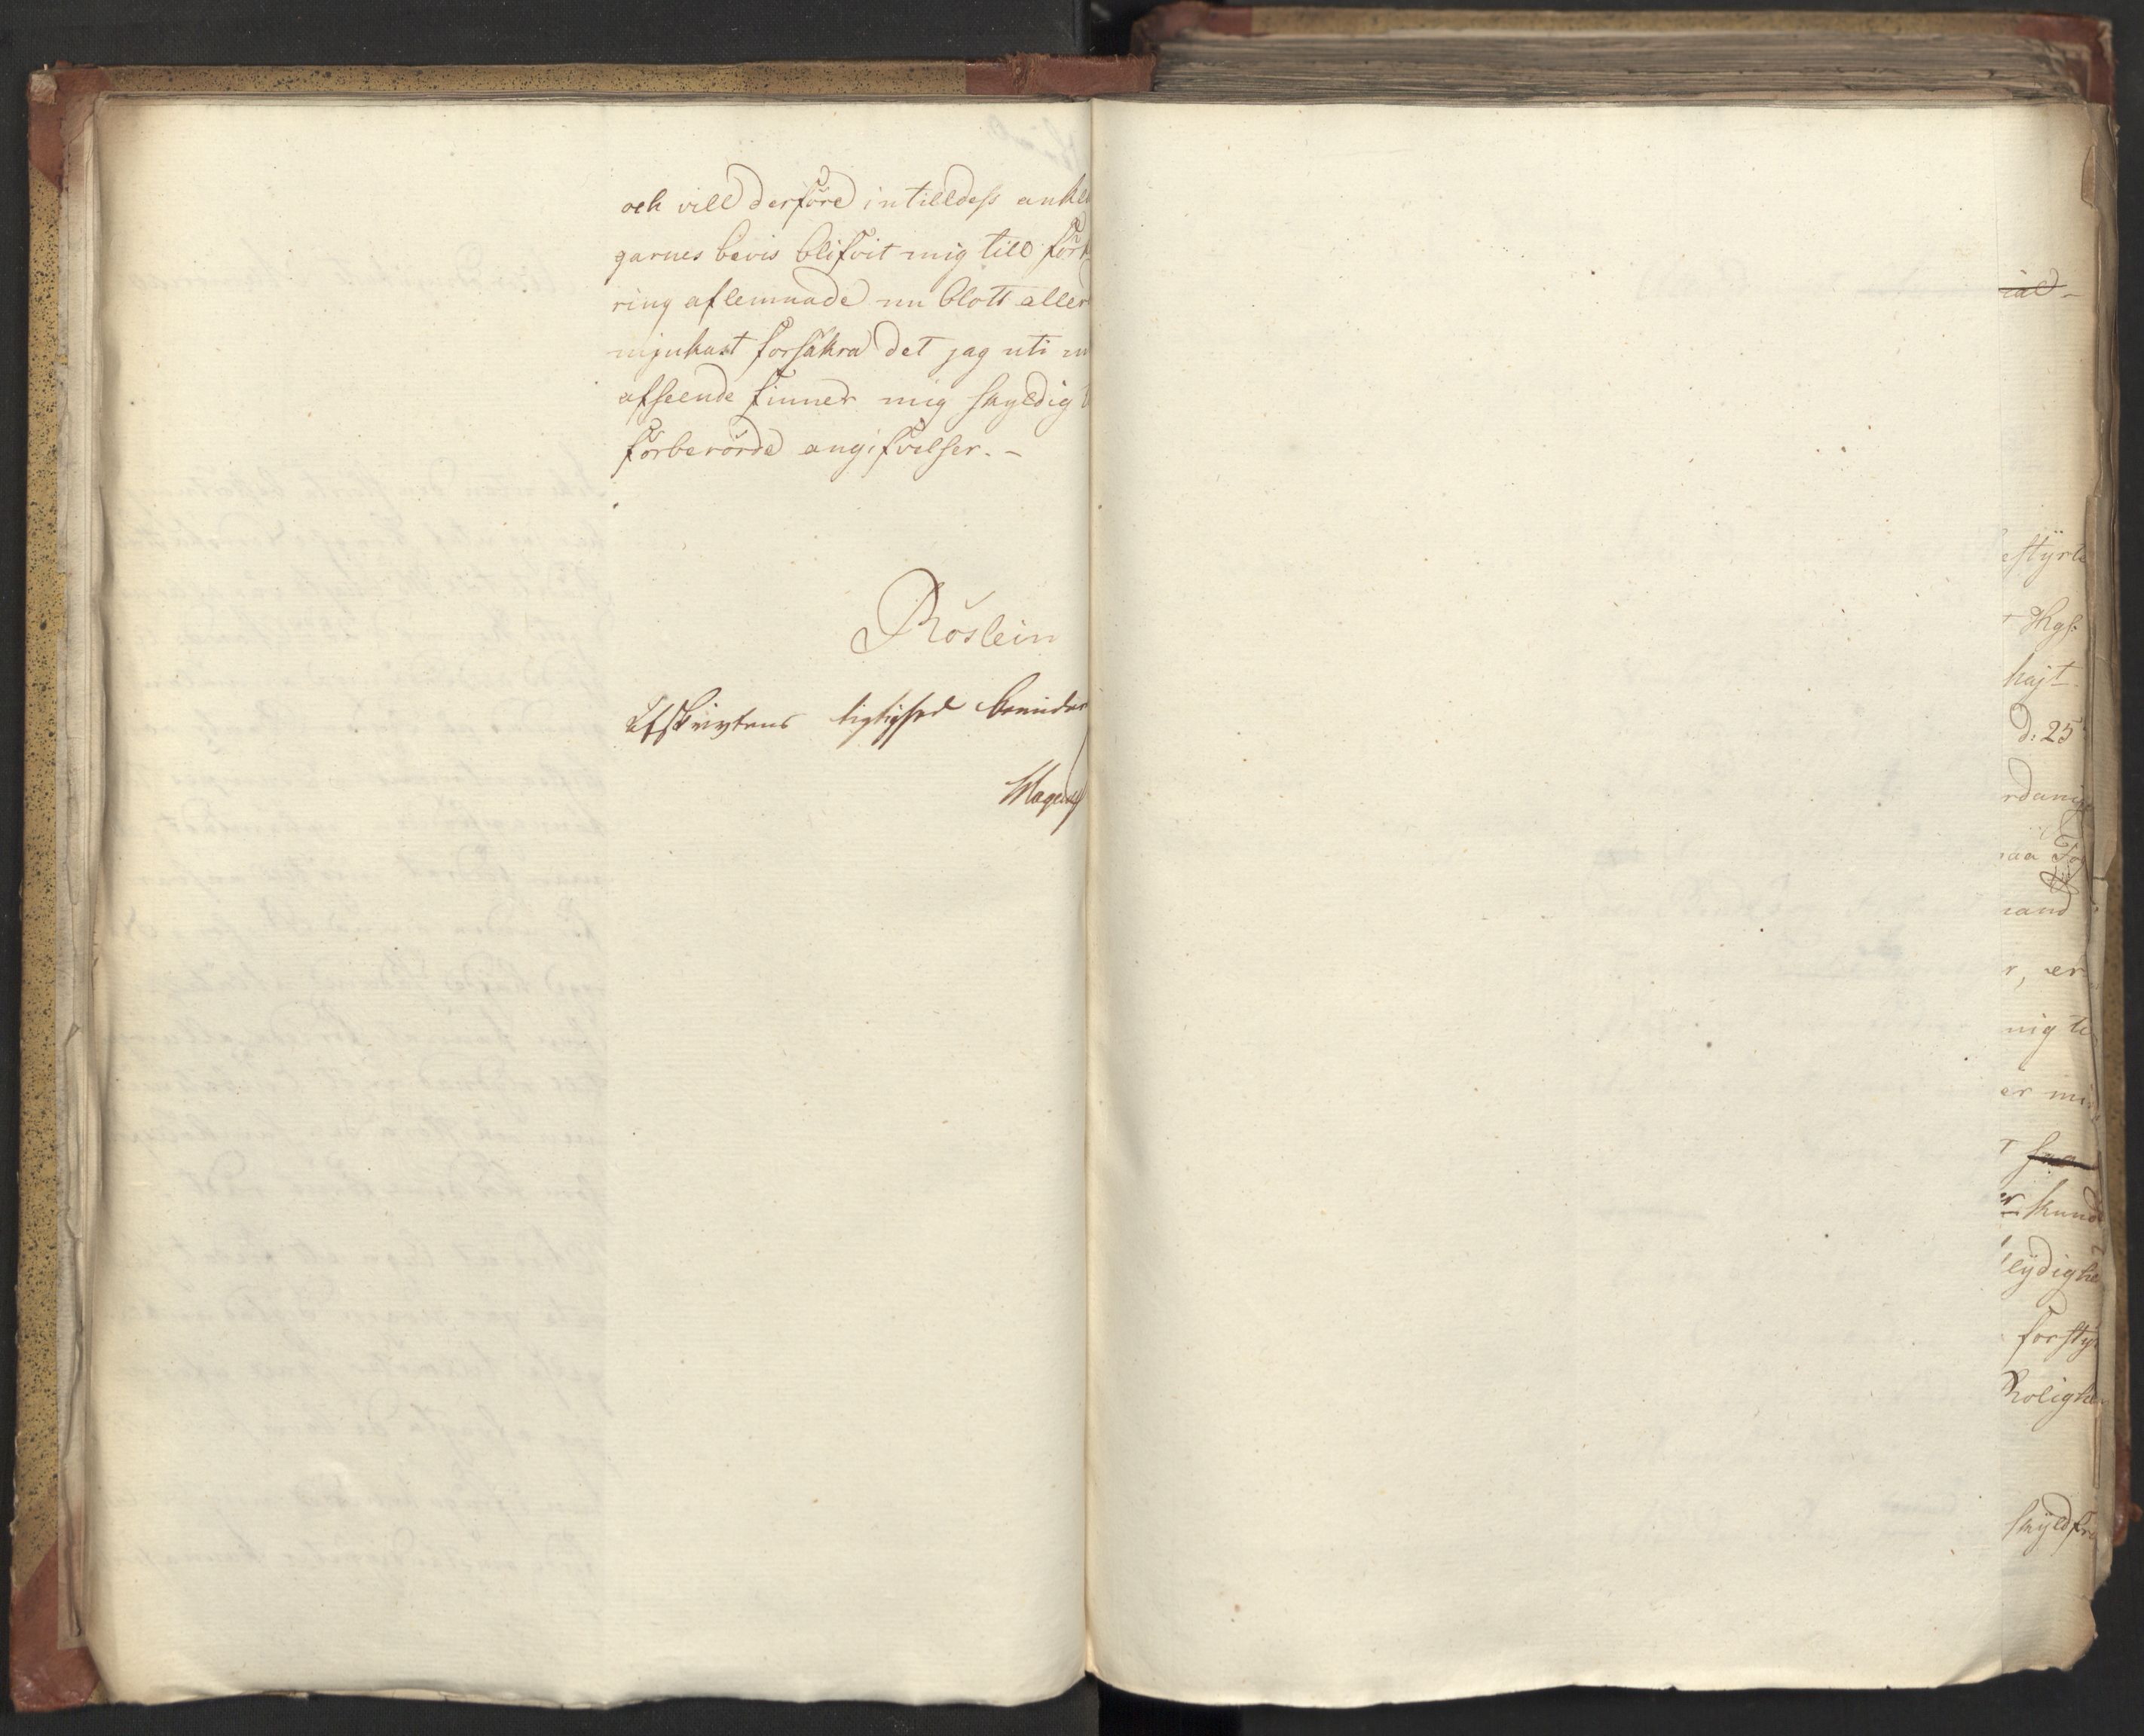 och vill derföre intilldess ankla
garnes bevis blifvit mig till förk
ring aflemnade nu blott aller
mjukast forsäkra det jag uti in
afseende finner mig skyldig t
förberörde angifvelser. -
Röslein
Afskrivtens rigtighed
ial -
estyrte
t Kgs:
hajt
d: 25
rdanig
aa
and
r, er
mig te
er mi
t
er kund
lÿdighe
forsty
Rolighe
skyldfri